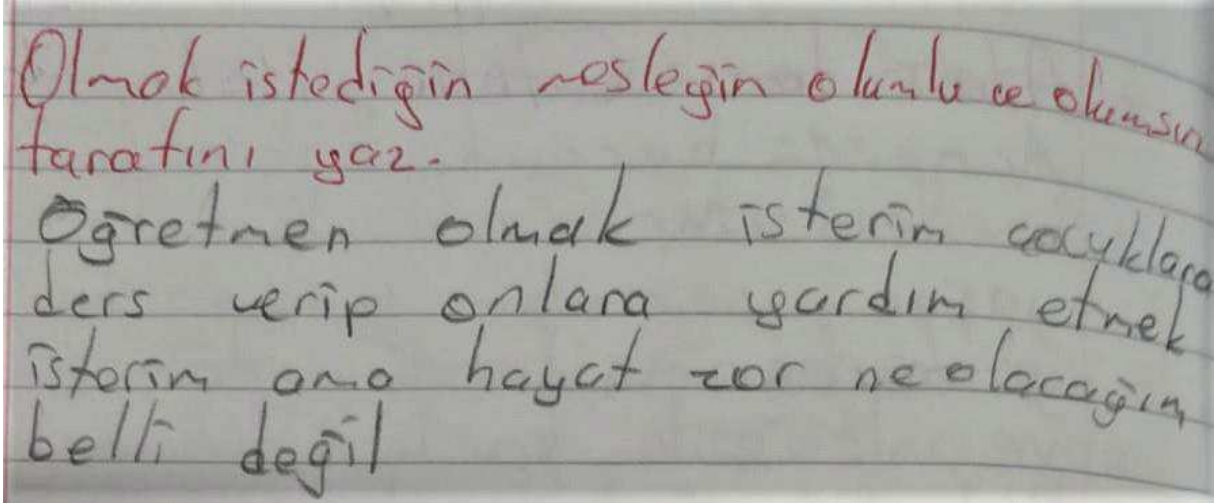 Olmak istediğin mesleğin olumlu ve olumsın
tarafını yaz.
Öğretmen olmak isterim çocuklara
ders verip onlara yardım etmek
isterim ama hayat zor ne olacağım
belli değil